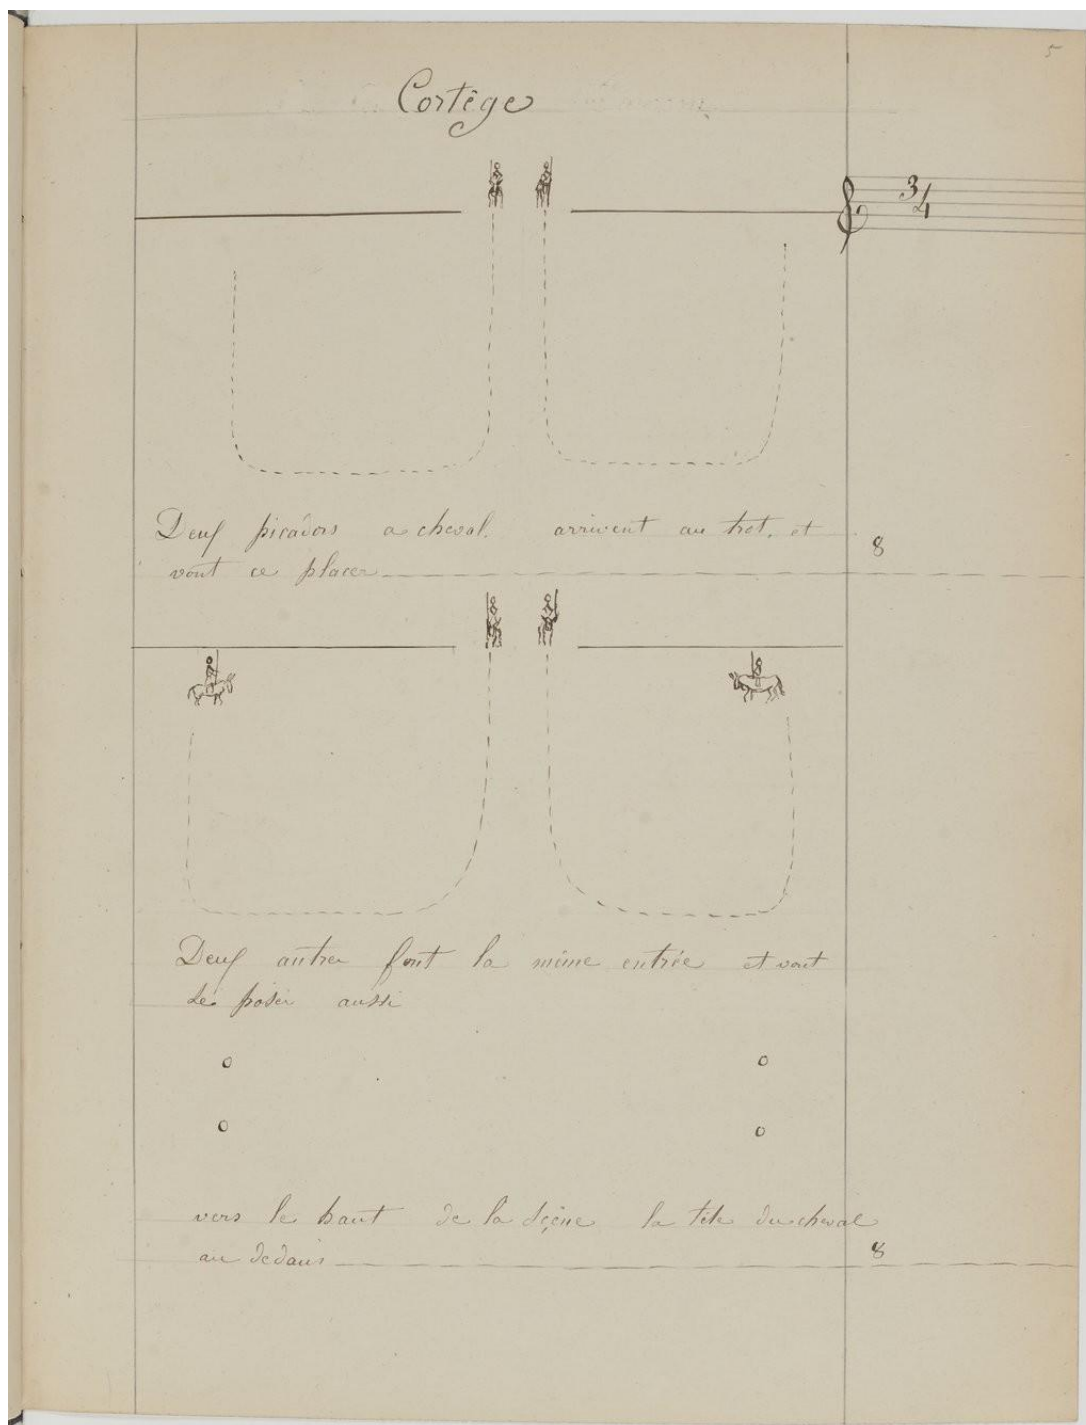 5
Cortège
3/4
Deux picadors a cheval. arrivent au trot. et
vont ce placer
8
Deux autres font la même entrée et vont
se poser aussi
vers le haut de la scène la tête du cheval
au dedans
8